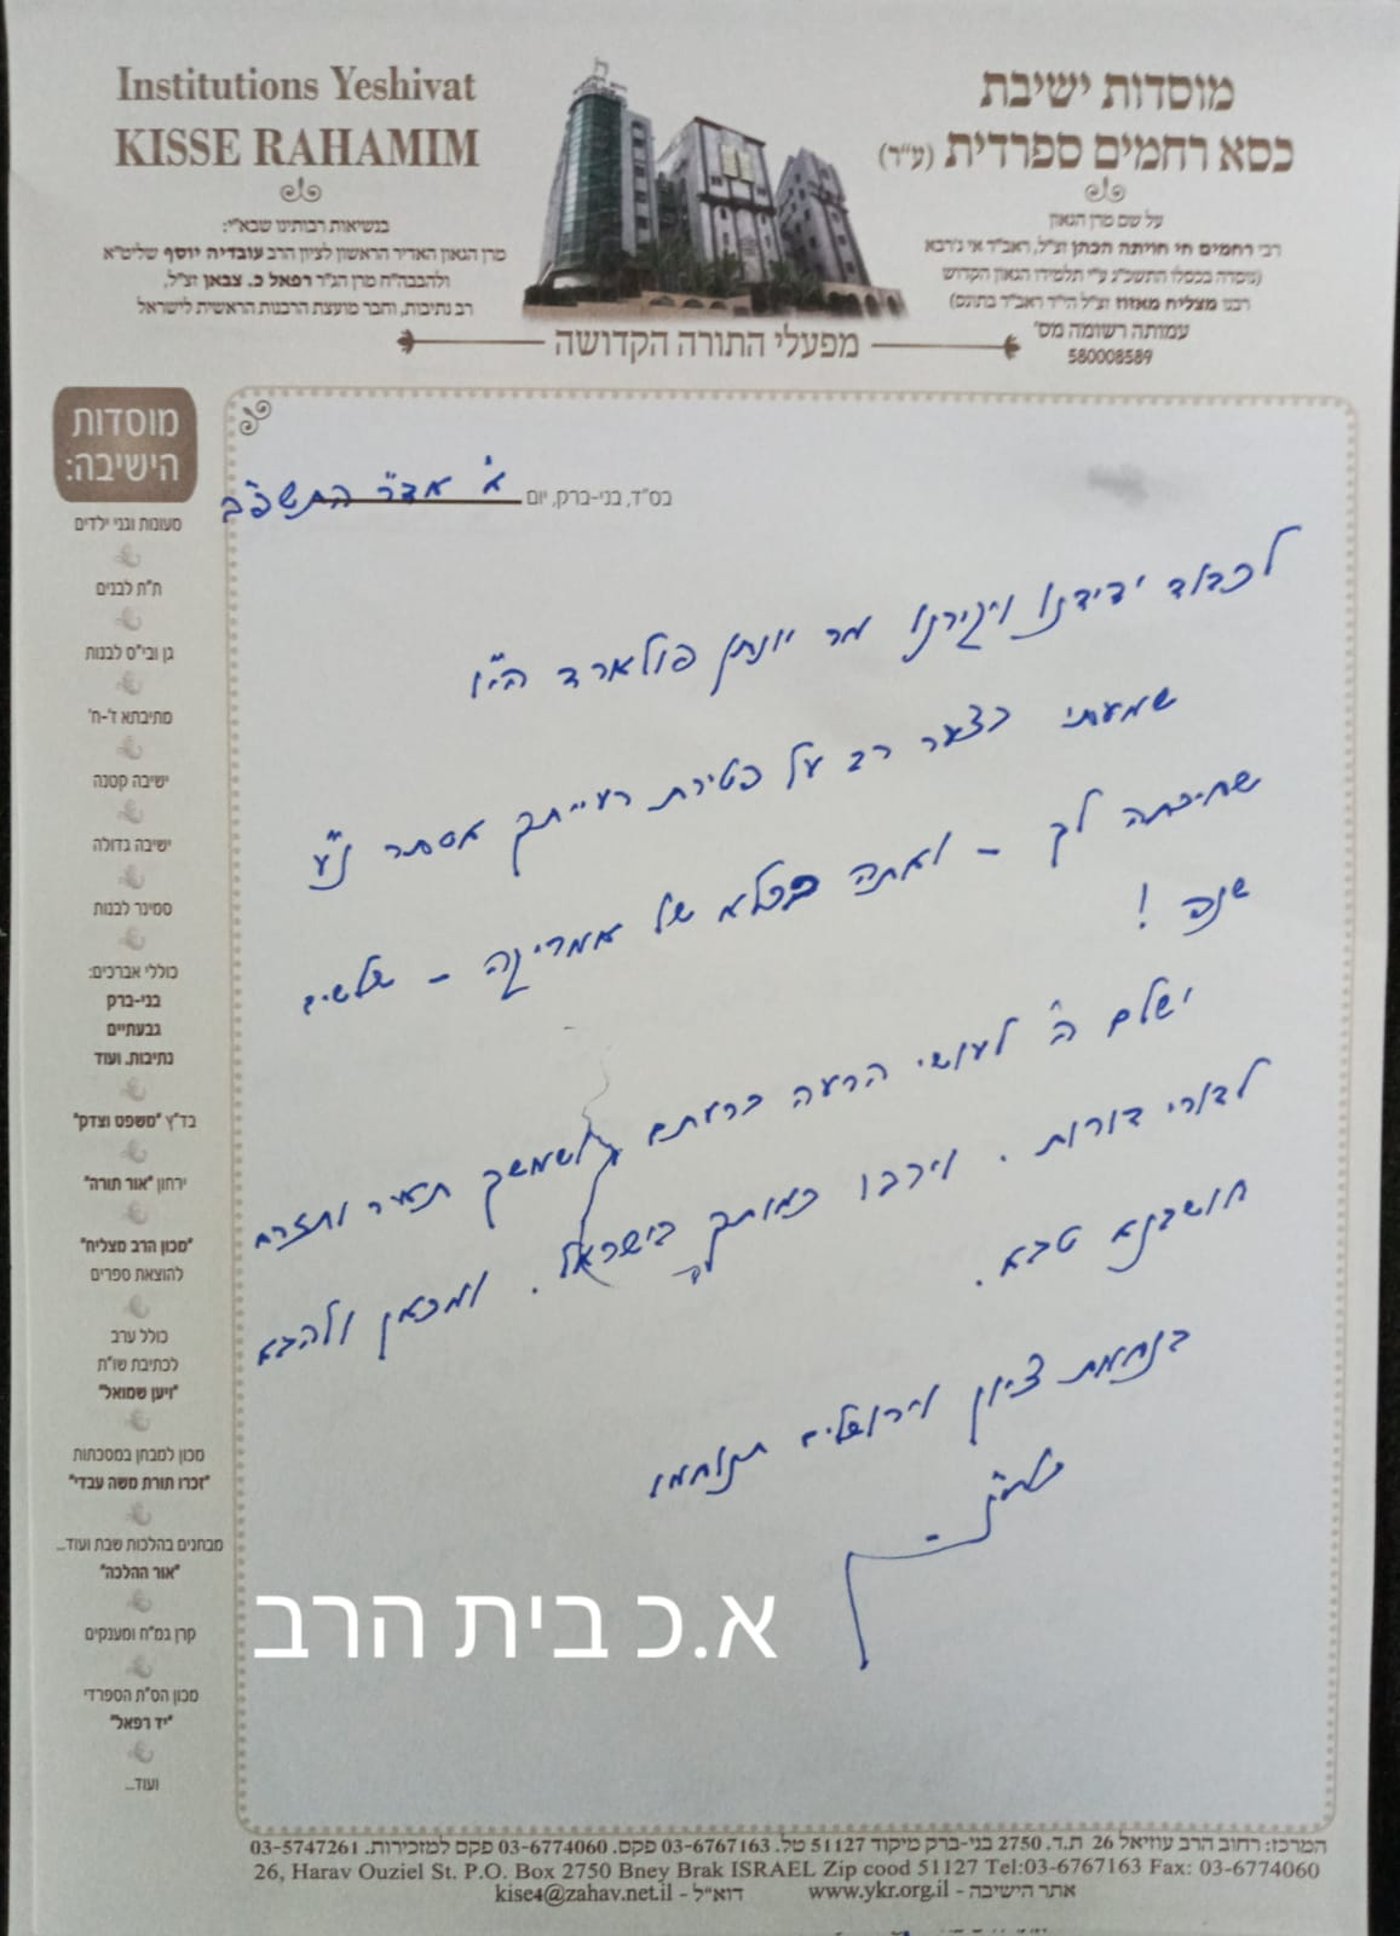 מוסדות ישיבת
כסא רחמים ספרדית (ע"ר)
על שם מרן הגאון
רבי רחמים חי חויתה הכהן זצ"ל, ראב"ד אי ג'רבא
(נוסדה בכסלו התשכ"ג ע"י תלמידו הגאון הקדוש
רבנו מצליח מאזוז זצ"ל הי"ד ראב"ד בתונס)
עמותה רשומה מס'
580008589
Institutions Yeshivat
KISSE RAHAMIM
בנשיאות רבותינו שבא"י:
מרן הגאון האדיר הראשון לציון הרב עובדיה יוסף שליט"א
ולהבבה"ח מרן הג"ר רפאל כ. צבאן זצ"ל,
רב נתיבות, וחבר מועצת הרבנות הראשית לישראל
מפעלי התורה הקדושה
בס"ד, בני-ברק, יום א' אד"ר התשפ"ב
לכבוד ידידנו ויקירנו מר יונתן פולארד הי"ו
שמעתי בצער רב על פטירת רעייתך אסתר נ"ע
שחיכתה לך - ואתה בכלא של אמריקה - שלשים
שנה!
ישלם ה' לעושי הרעה כרעתם ושמשך תאיר ותזרח
לדורי דורות. וירבו כמותך בישראל. ומכאן ולהבא
חושבנא טבא.
בנחמת ציון וירושלים תנוחמו
א.כ בית הרב
מוסדות
הישיבה:
מעונות וגני ילדים
ת"ת לבנים
גן ובי"ס לבנות
מתיבתא ז'-ח'
ישיבה קטנה
ישיבה גדולה
סמינר לבנות
כוללי אברכים:
בני-ברק
גבעתיים
נתיבות, ועוד
בד"ץ "משפט וצדק"
ירחון "אור תורה"
"מכון הרב מצליח"
להוצאת ספרים
כולל ערב
לכתיבת שו"ת
"ויען שמואל"
מכון למבחן במסכתות
"זכרו תורת משה עבדי"
מבחנים בהלכות שבת ועוד...
"אור ההלכה"
קרן גמ"ח ומענקים
מכון הס"ת הספרדי
"יד רפאל"
ועוד...
המרכז: רחוב הרב עוזיאל 26 ת.ד. 2750 בני-ברק מיקוד 51127 טל. 03-6767163 פקס. 03-6774060 פקס למזכירות. 03-5747261
26, Harav Ouziel St. P.O. Box 2750 Bney Brak ISRAEL Zip cood 51127 Tel:03-6767163 Fax: 03-6774060
אתר הישיבה - www.ykr.org.il דוא"ל - kise4@zahav.net.il